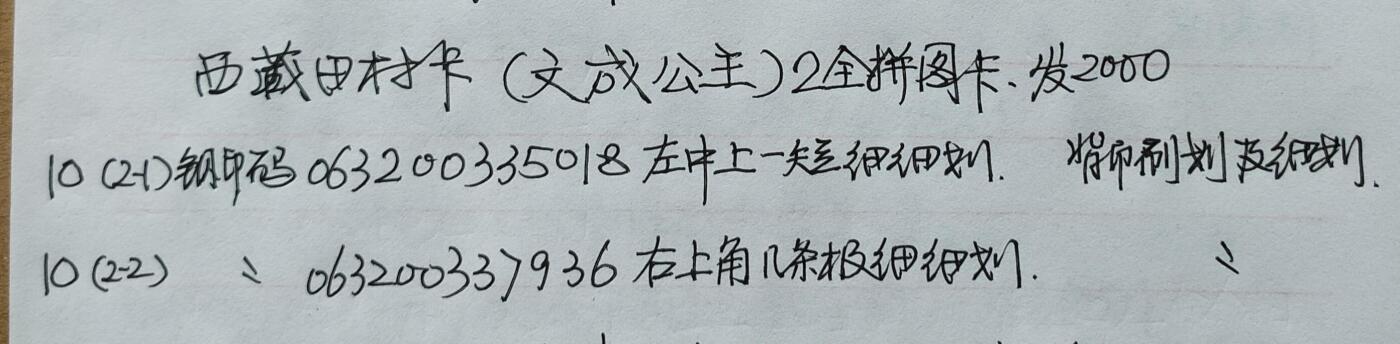 西藏田村卡（文成公主）2全拼图卡.发2000
10（2-1）钢印码063200335018左中上一短细细划. 背印刷划及细划.
10（2-2） 〃 063200337936右上角几条极细细划. 〃